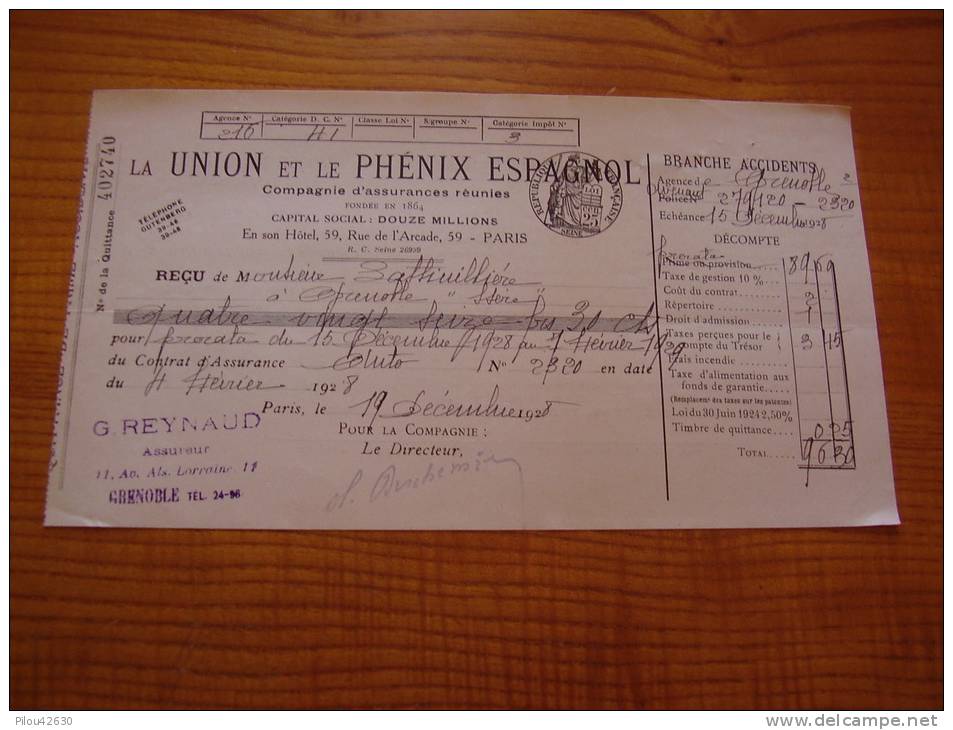 Agence No Catégorie D. C. No Classe Loi No S/groupe No Catégorie Impôt No
216 41 3
No de la Quittance 402740
LA UNION ET LE PHÉNIX ESPAGNOL
Compagnie d'assurances réunies
FONDÉE EN 1864
CAPITAL SOCIAL : DOUZE MILLIONS
En son Hôtel, 59, Rue de l'Arcade, 59 - PARIS
R. C. Seine 26999
TÉLÉPHONE
GUTENBERG
39-46
39-48
RÉPUBLIQUE FRANÇAISE
SEINE
REÇU de Monsieur
à Grenoble "Isère"
Quatre vingt seize frs 30 cts
pour prorata du 15 Décembre 1928 au 7 Février 1929
du Contrat d'Assurance Auto No 2320 en date
du 4 Février 1928
Paris, le 19 Décembre 1928
POUR LA COMPAGNIE :
Le Directeur,
G. REYNAUD
Assureur
11, Av. Als. Lorraine, 11
GRENOBLE TÉL. 24-96
BRANCHE ACCIDENTS
Agence de Grenoble 2
Avenant
Police No 279120 - 2320
Echéance 15 Décembre 1928
DÉCOMPTE
prorata
Prime ou provision 89 69
Taxe de gestion 10 %
Coût du contrat 2
Répertoire 1
Droit d'admission
Taxes perçues pour le compte du Trésor 3 45
Frais incendie
Taxe d'alimentation aux
fonds de garantie
(Remplacement des taxes sur les patentes)
Loi du 30 Juin 1924 2,50%
Timbre de quittance 0 25
TOTAL 96 30
Pilou42630
www.delcampe.net